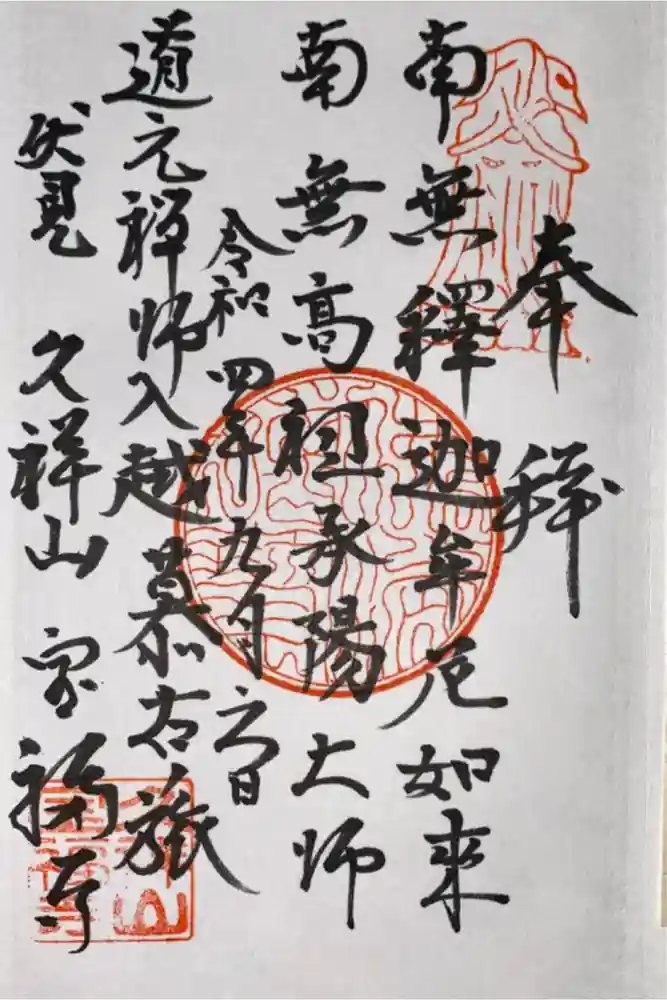 奉拝
南無釋迦牟尼如來
南無高祖承陽大師
令和四年九月六日
道元禅師入越慕古旅
伏見 久祥山 宝福寺